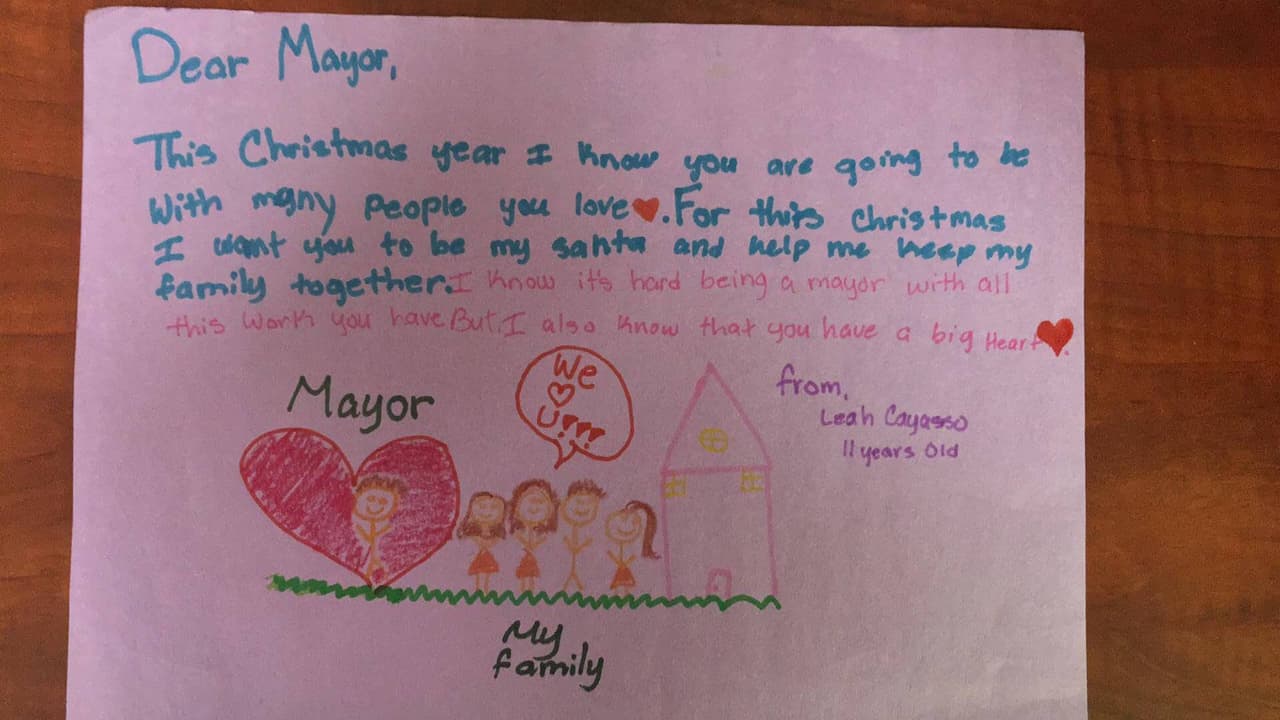 Dear Mayor,
This Christmas year I know you are going to be
with many people you love❤.For this christmas
I want you to be my santa and help me keep my
family together.I know it's hard being a mayor with all
this work you have But,I also know that you have a big Heart❤.
Mayor
We
♡
U
from,
Leah Cayasso
11 years old
My
family